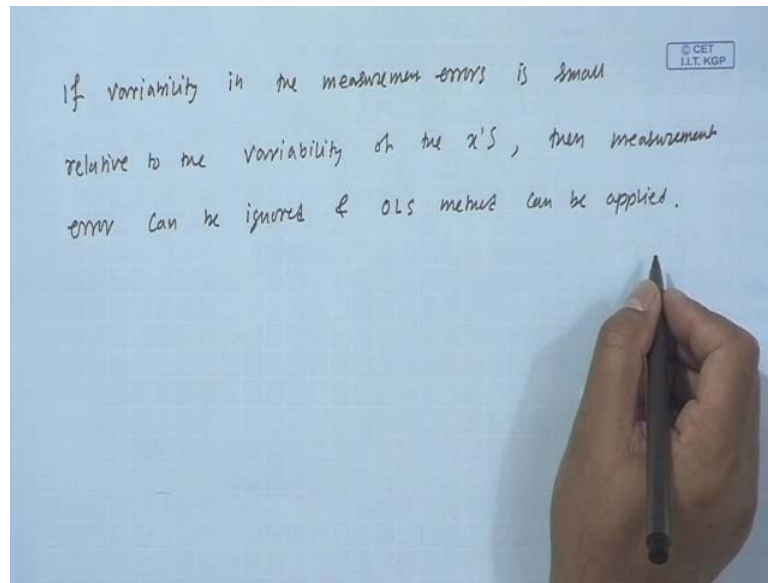 © CET
I.I.T. KGP
If variability in the measurement errors is small
relative to the variability of the x's, then measurement
error can be ignored & OLS method can be applied.